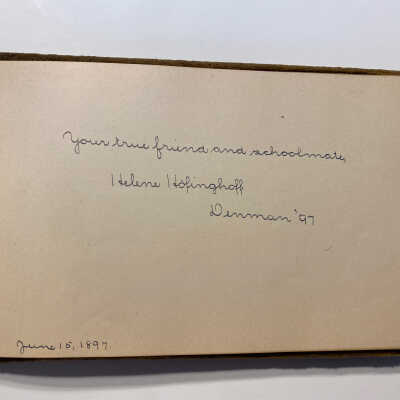 Your true friend and schoolmate,
Helene Hofinghoff
Denman '97
June 15, 1897.